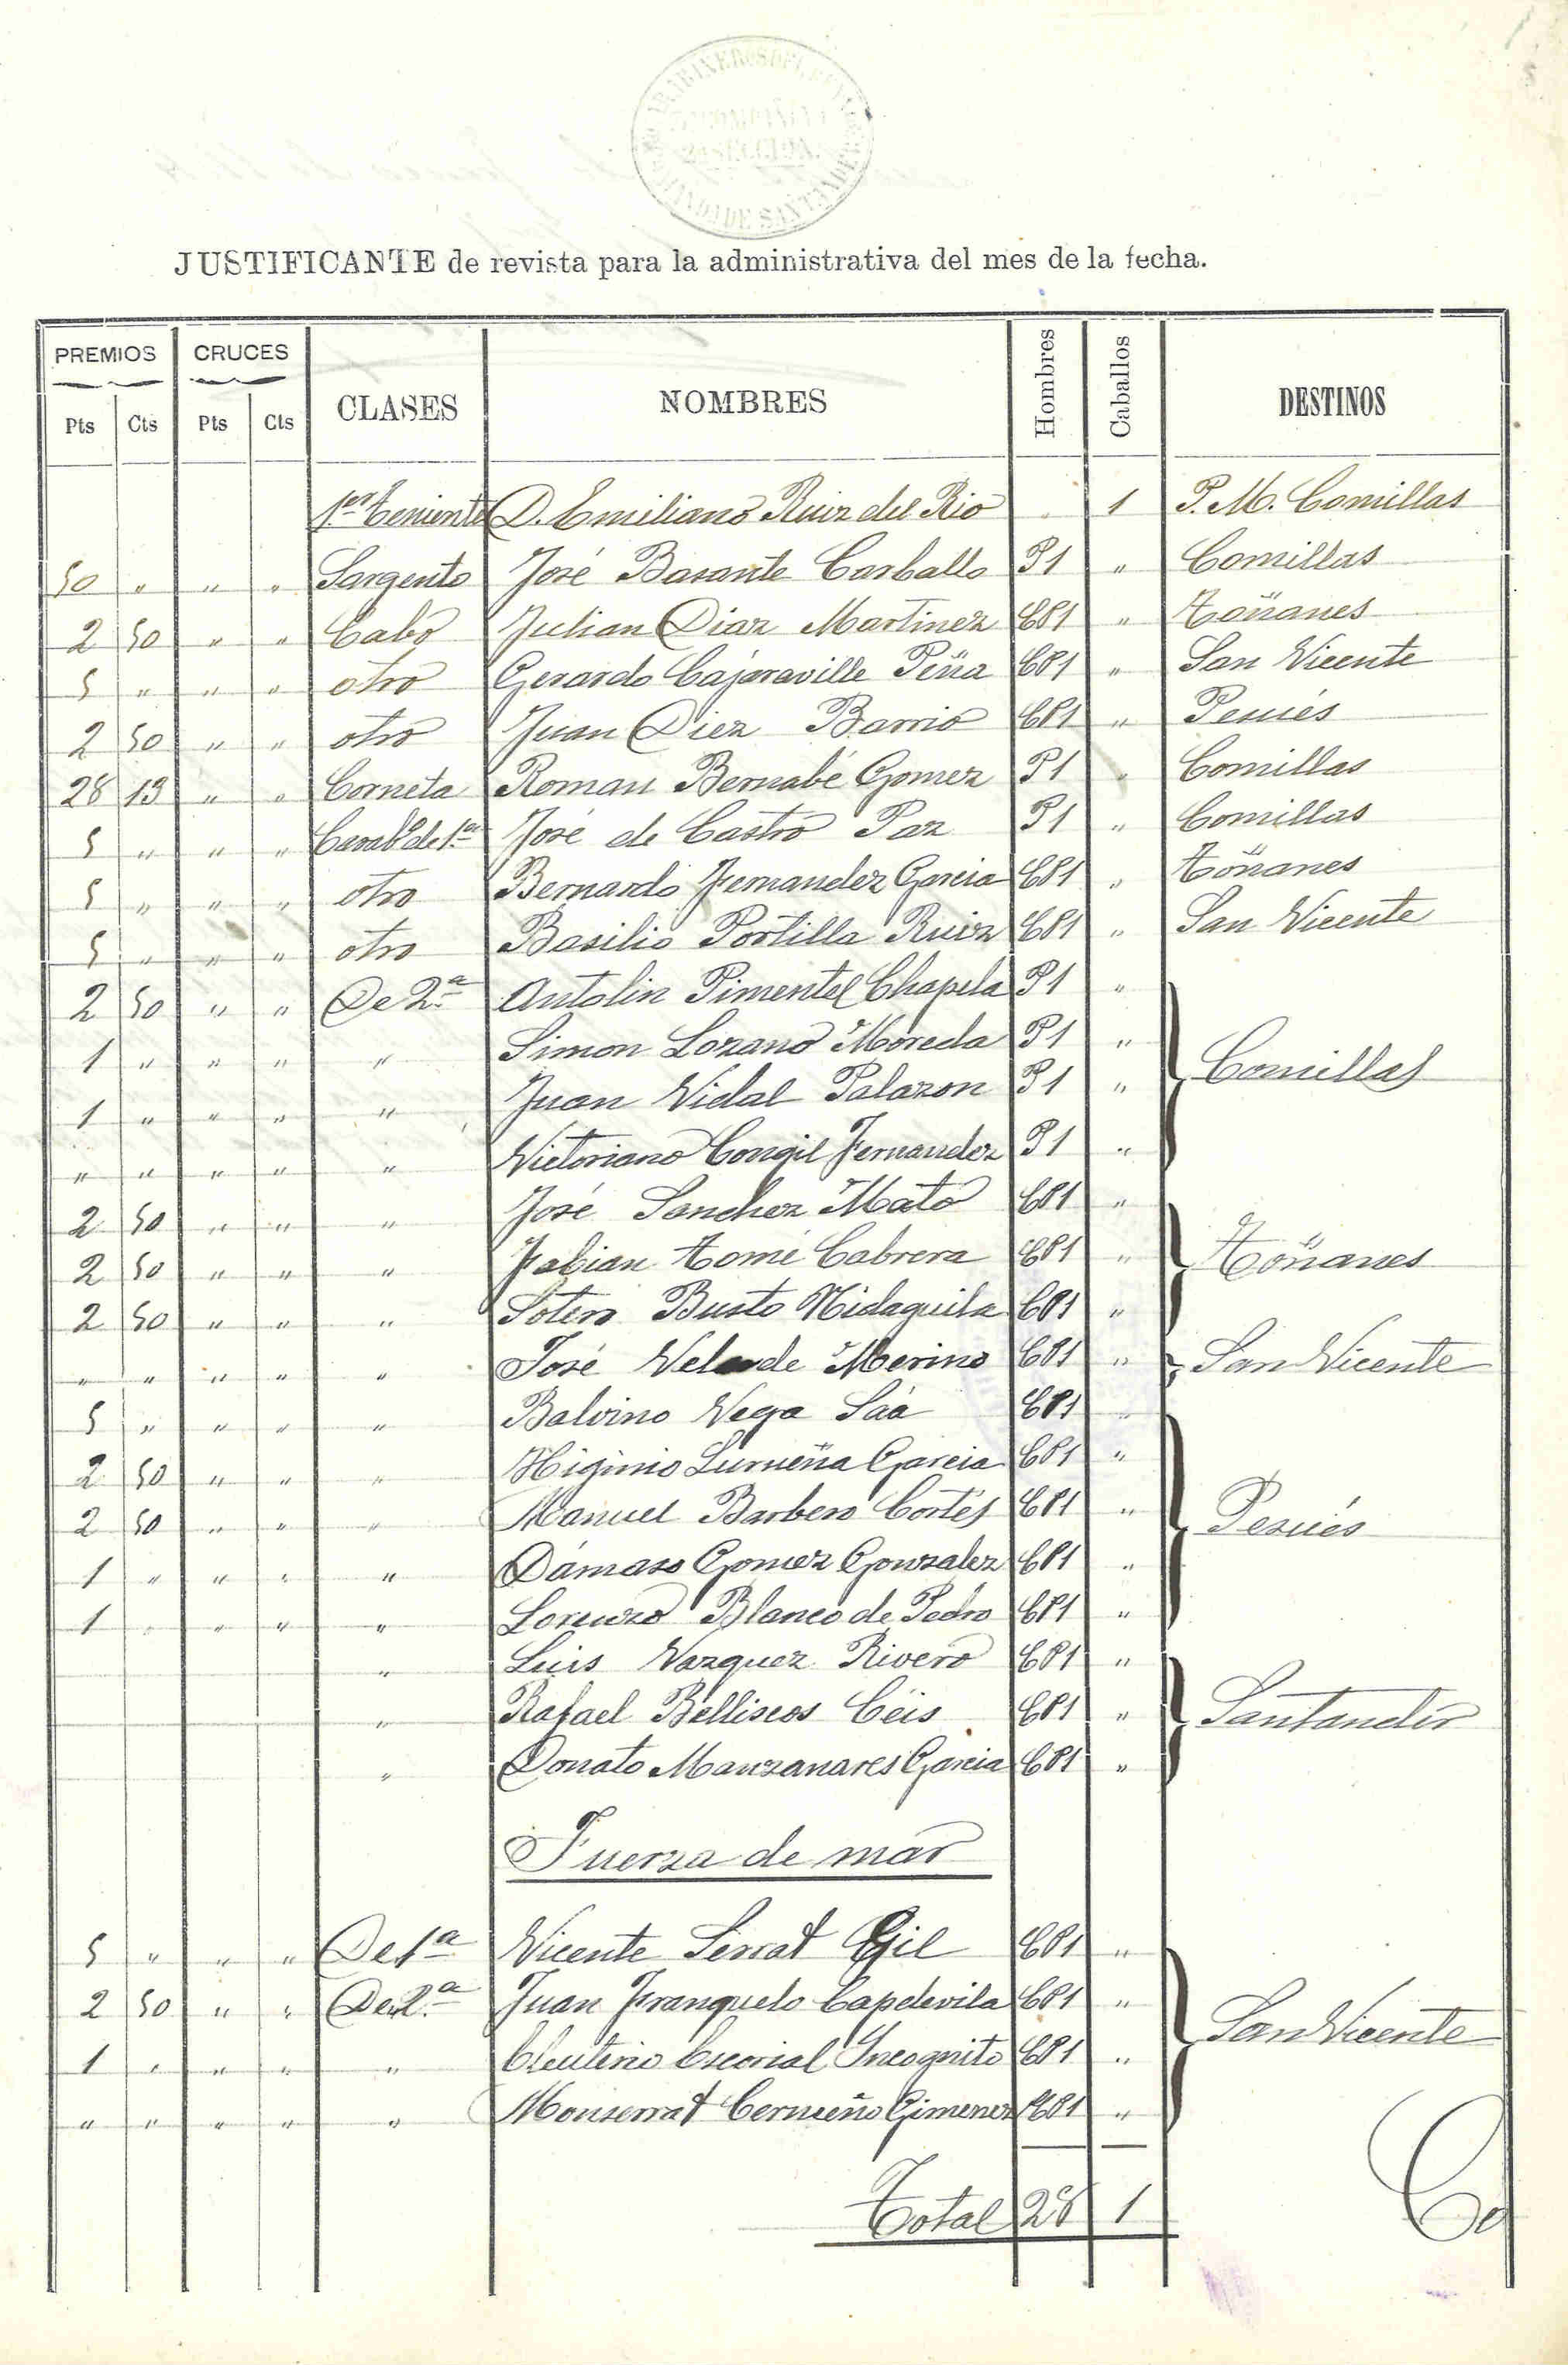 CARABINEROS DEL REINO
COMPAÑIA
2ª SECCION.
COMANDANCIA DE SANTANDER
JUSTIFICANTE de revista para la administrativa del mes de la fecha.
PREMIOS CRUCES CLASES NOMBRES Hombres Caballos DESTINOS
Pts Cts Pts Cts
1.er Teniente D. Emiliano Ruiz del Rio . 1 P. M. Comillas
50 " " " Sargento José Basante Carballo P1 " Comillas
2 50 " " Cabo Julian Diaz Martinez CP1 " Toñanes
5 " " " otro Gerardo Cajaraville Peña CP1 " San Vicente
2 50 " " otro Juan Diez Barrio CP1 " Pesués
28 13 " " Corneta Roman Bernabé Gomez P1 " Comillas
5 " " " Carab.º de 1.ª José de Castro Paz P1 " Comillas
5 " " " otro Bernardo Fernandez Garcia CP1 " Toñanes
5 " " " otro Basilio Portilla Ruiz CP1 " San Vicente
2 50 " " De 2.ª Antolin Pimentel Chapela P1 "
1 " " " " Simon Lozano Moreda P1 " Comillas
1 " " " " Juan Vidal Palazon P1 "
" " " " " Victoriano Congil Fernandez P1 "
2 50 " " " José Sanchez Mato CP1 "
2 50 " " " Fabian Tomé Cabrera CP1 " Toñanes
2 50 " " " Sotero Busto Hidaguila CP1 "
" " " " " José Velarde Merino CP1 " San Vicente
5 " " " " Balvino Vega Sáa CP1 "
2 50 " " " Higinio Lurueña Garcia CP1 "
2 50 " " " Manuel Barbero Cortés CP1 " Pesués
1 " " " " Dámaso Gomez Gonzalez CP1 "
1 " " " " Lorenzo Blanco de Pedro CP1 "
" Luis Vazquez Rivero CP1 "
" Rafael Belliscos Céis CP1 " Santander
" Donato Manzanares Garcia CP1 "
Fuerza de mar
5 " " " De 1ª Vicente Serrat Gil CP1 "
2 50 " " De 2.ª Juan Franquelo Capdevila CP1 " San Vicente
1 " " " " Eleuterio Escorial Incognito CP1 "
" " " " " Monserrat Cerrueño Gimenez CP1 "
Total 28 1
Co